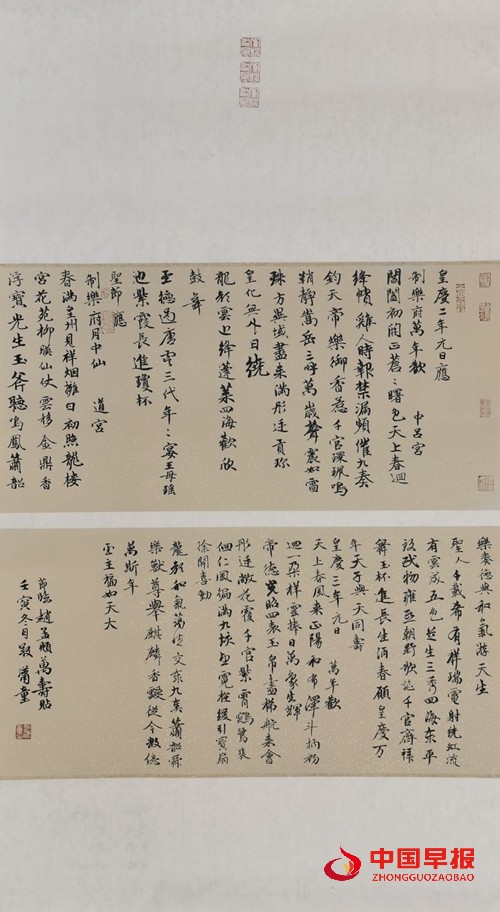 皇慶二年元日應
制樂府萬年歡 中呂宮
閶闔初開正蒼:曙色天上春迴
絳幘雞人時報禁漏頻催九奏
鈞天帝樂御香惹千官環珮鳴
鞘靜嵩岳三呼萬歲聲震如雷
殊方異域盡來滿彤廷貢珍
皇化無外日繞
龍顏雲近絳蓬萊四海歡欣
鼓舞
聖德過唐虞三代年:宴王母瑤
池紫霞長進瓊杯
聖節應
制樂府月中仙 道宮
春滿皇州見祥烟離日初照龍樓
宮花苑柳映仙仗雲移金鼎香
浮寶光生玉斧聽鳴鳳簫韶
樂奏德與和氣游天生
聖人千載希有祥瑞電射繞虹流
有雲成五色芝生三秀四海太平
致武物雍熙朝野歌謳千官齊祿
舞玉杯進長生酒春願皇慶万
年天子與天同壽
皇慶三年元日 萬年歡
天上春風來正陽和布澤斗柄初
迴一朶祥雲捧日萬象生輝
帝德光昭四表玉帛盡梯航來會
彤廷敞花覆千官紫霄鵷鷺裴
佪仁風徧滿九垓望霓旌緩引寶扇
徐開喜動
龍顏和氣藹然交泰九奏簫韶舜
樂獸尊舉麒麟香靉從今數億
萬斯年
聖主福如天大
節臨趙孟頫萬壽貼
壬寅冬月 蕭童
中国早报
ZHONGGUOZAOBAO